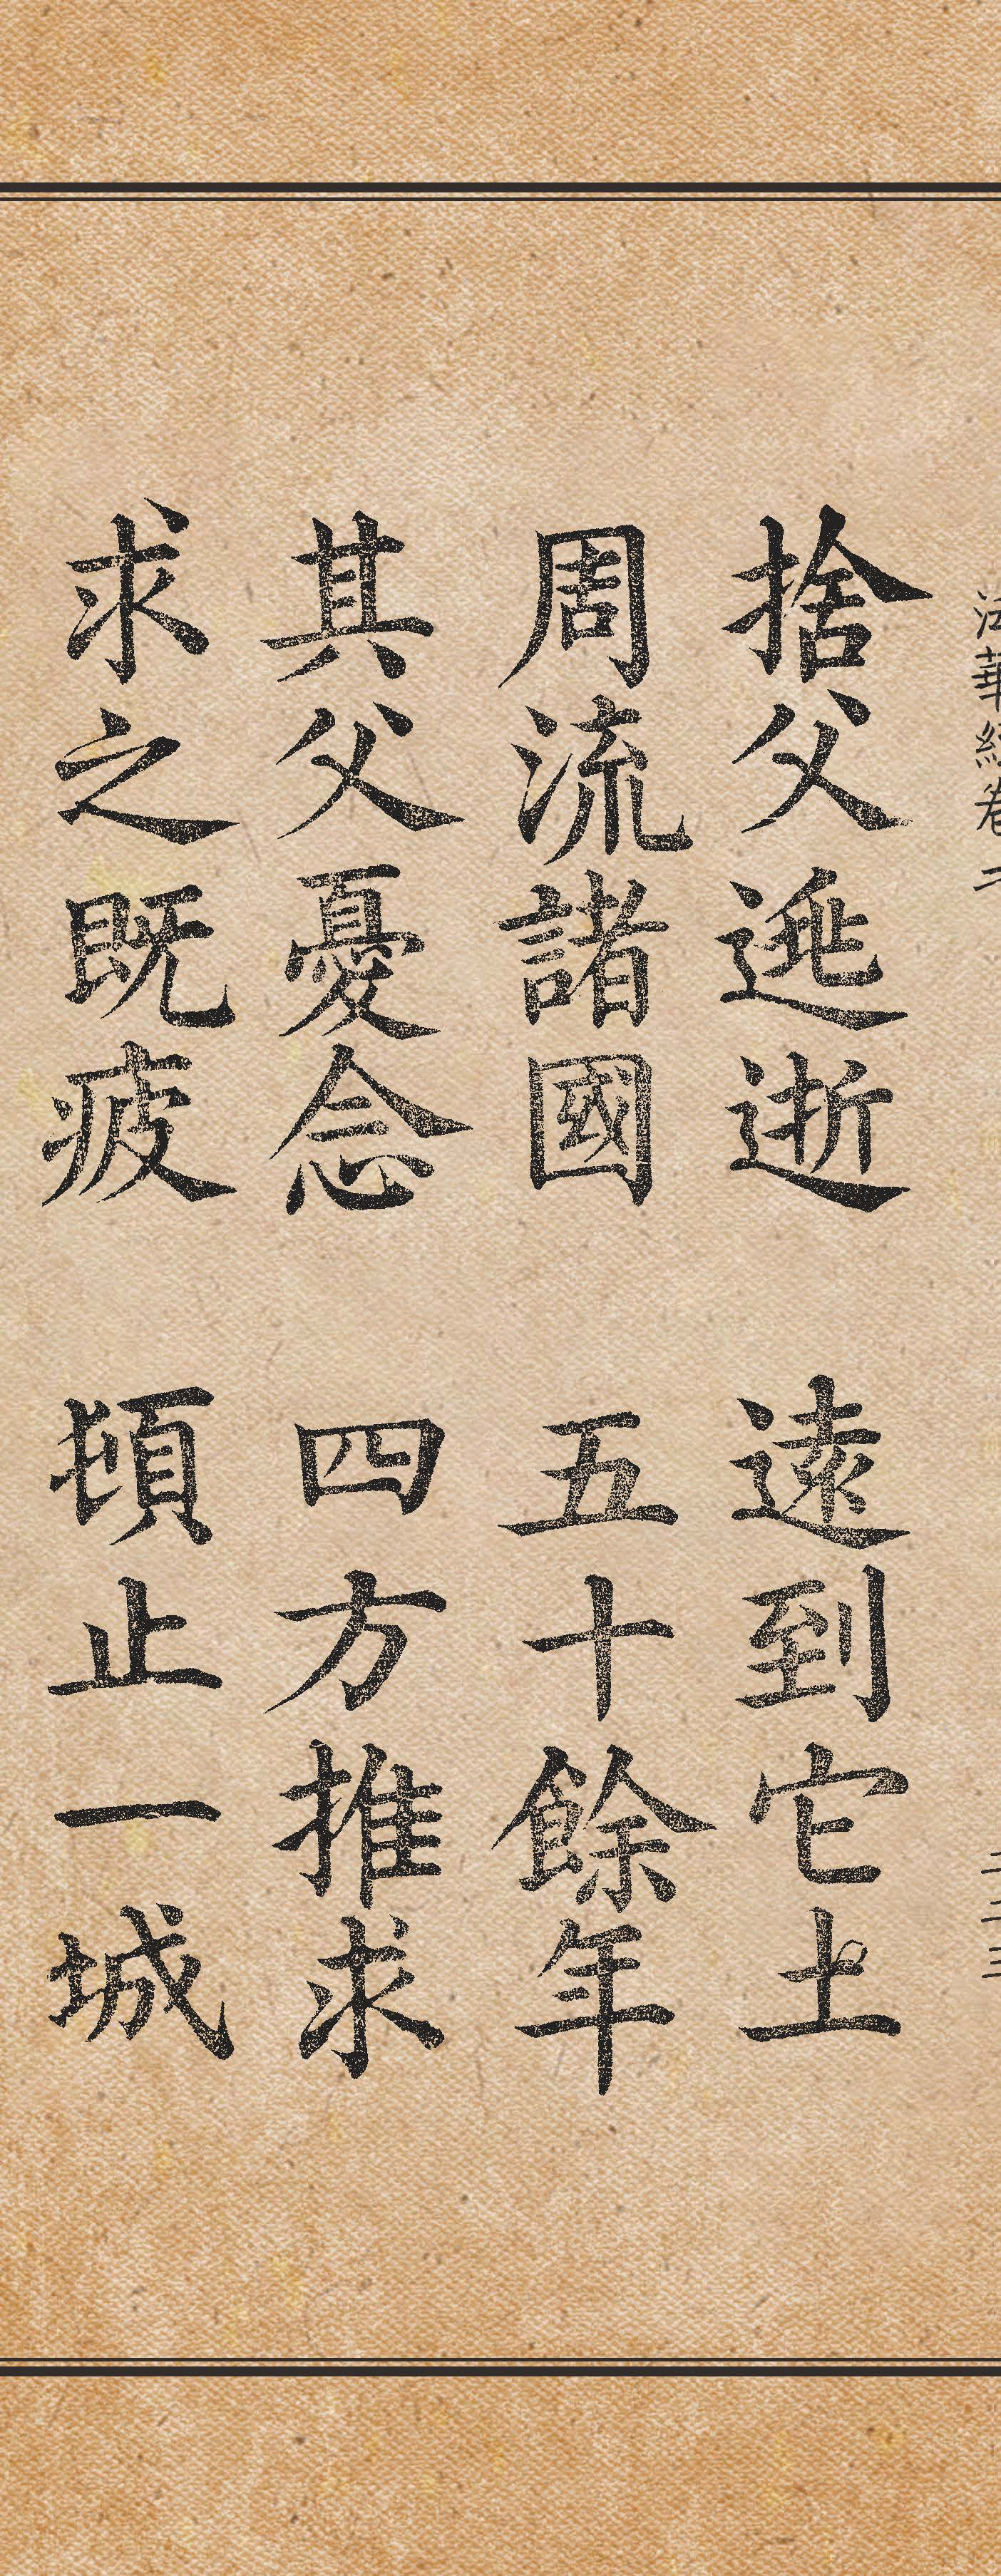 法華經卷二
二二三
捨父逃逝 遠到它土
周流諸國 五十餘年
其父憂念 四方推求
求之既疲 頓止一城